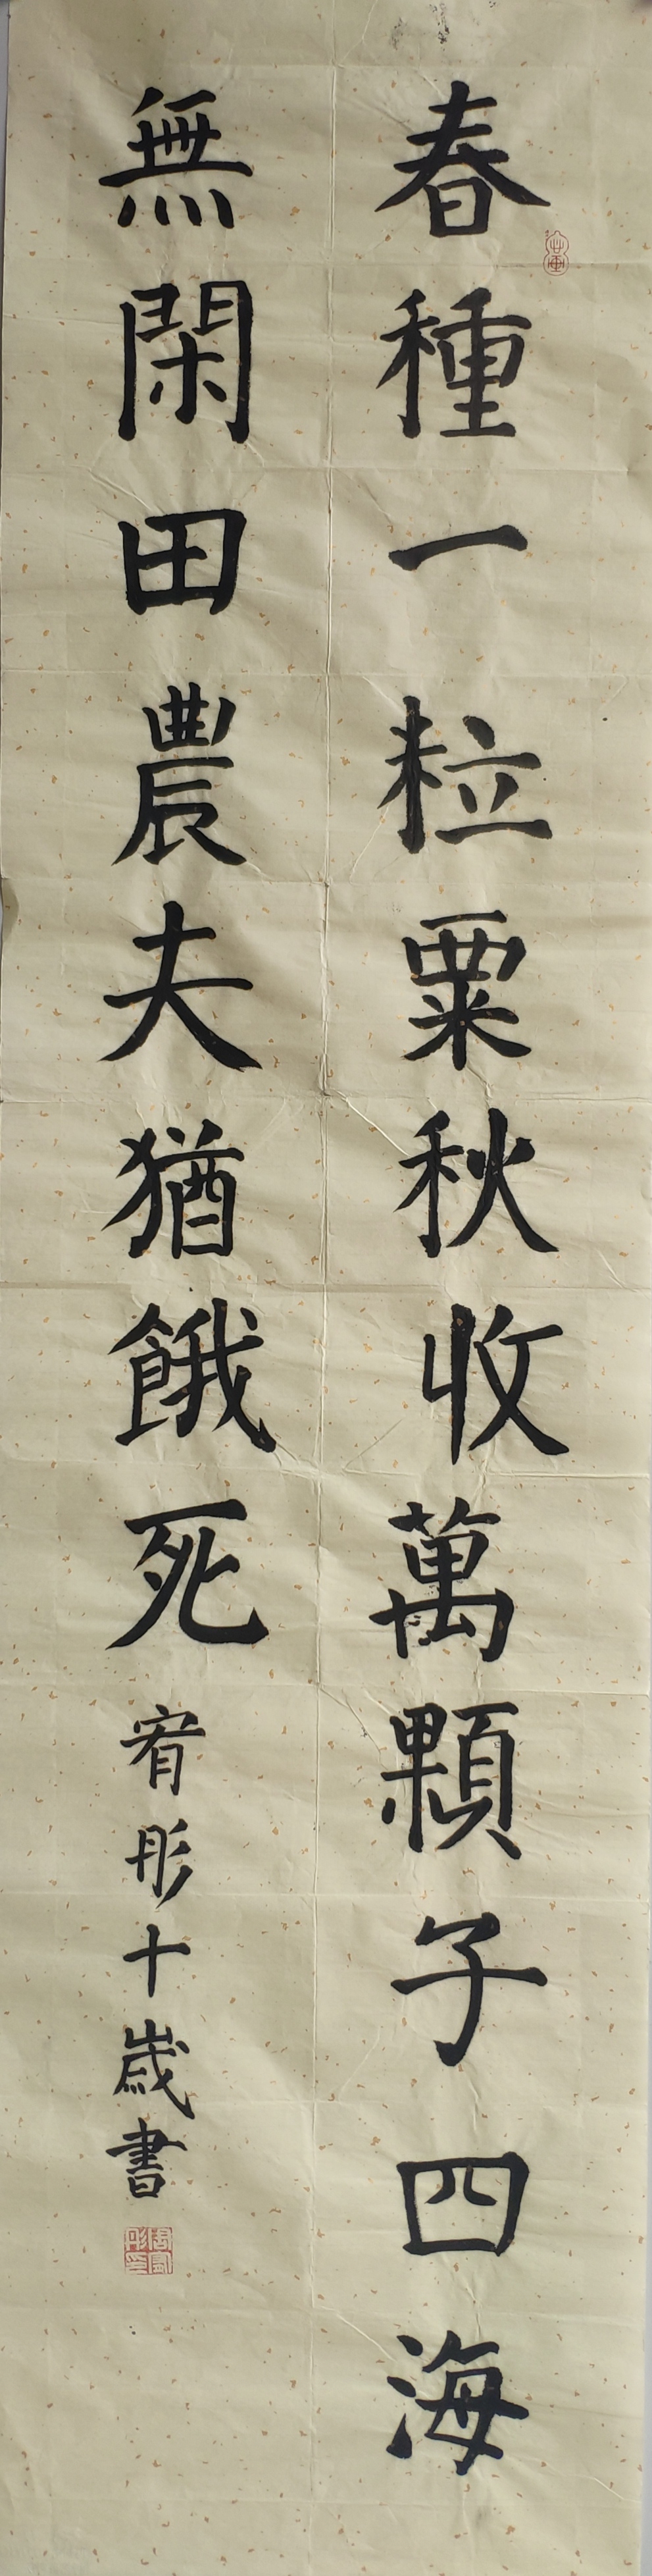 春種一粒粟秋收萬顆子四海
無閑田農夫猶餓死宥彤十歲書